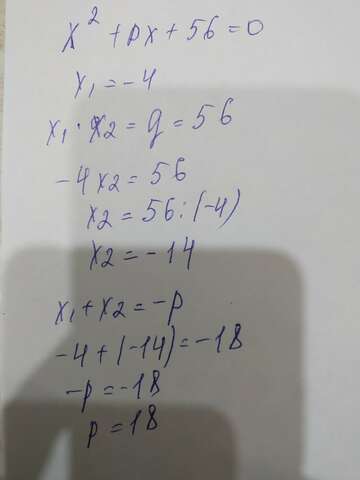 x² + px + 56 = 0
x₁ = -4
x₁ · x₂ = q = 56
-4x₂ = 56
x₂ = 56 : (-4)
x₂ = -14
x₁ + x₂ = -p
-4 + (-14) = -18
-p = -18
p = 18